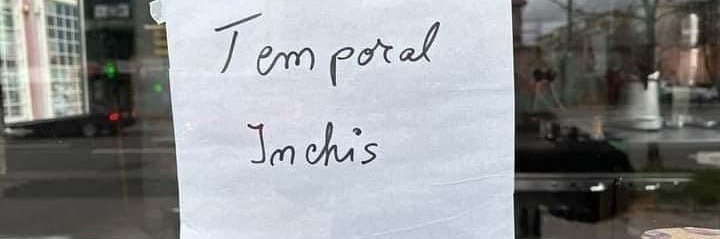 Temporal
Inchis